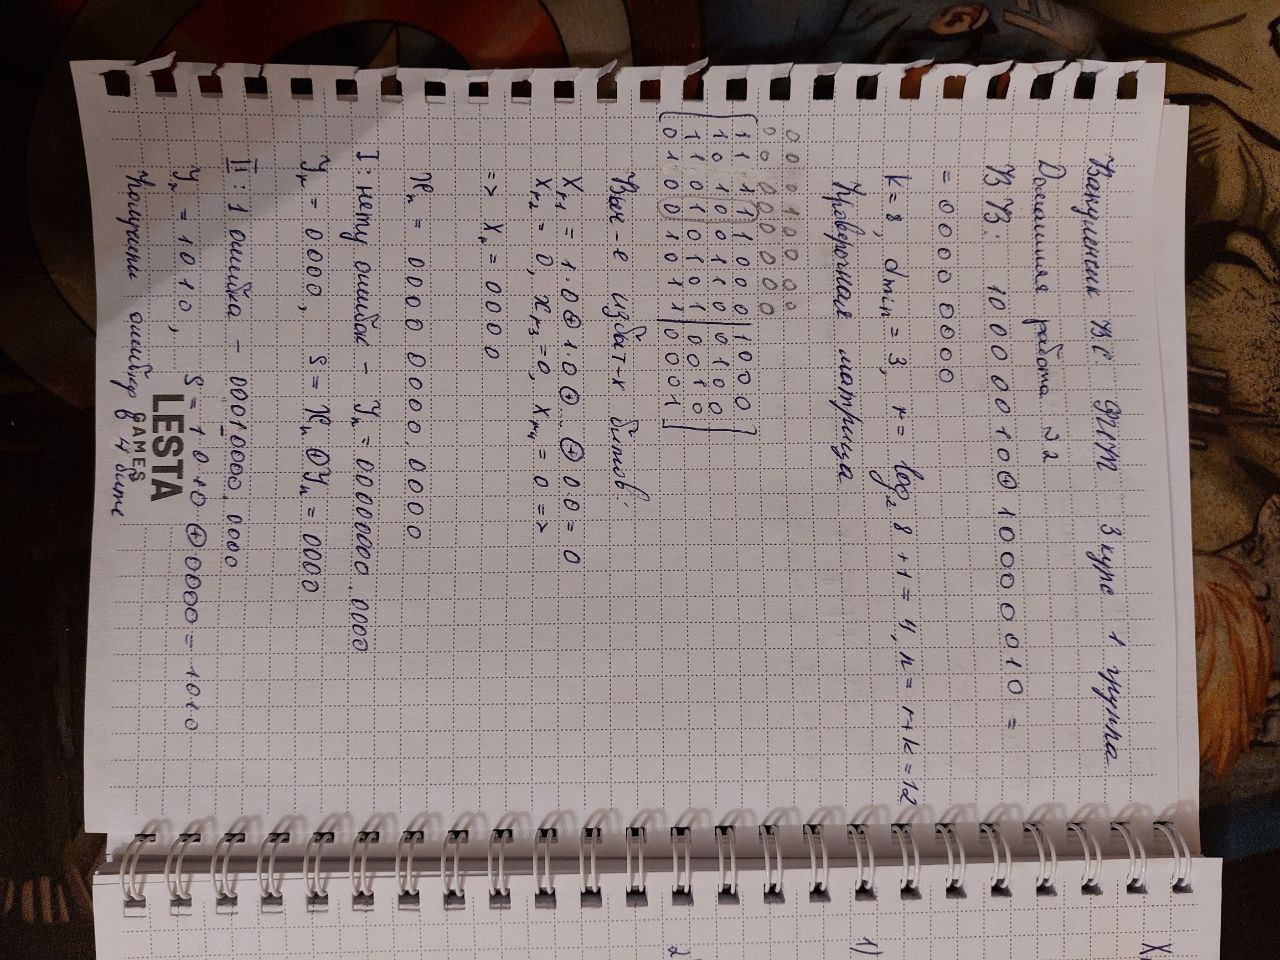 Вакуленчик В.С. ФИТ 3 курс 1 группа
Домашняя работа 2
ВВ: 10000010 ⊕ 10000010 =
= 00000000
k=8, dmin=3, r= log₂ 8 +1 = 4, n=r+k=12
Проверочная матрица
0 0 0 1 0 0 0 0
0 0 0 0 0 0 0 0
1 1 1 1 1 0 0 0 1 0 0 0
1 0 1 0 0 1 1 0 0 1 0 0
1 1 0 1 0 1 0 1 0 0 1 0
0 1 0 0 1 0 1 1 0 0 0 1
Выч-е избыт-х битов:
Xr1 = 1.0⊕1.0⊕...⊕00=0
Xr2 = 0, Xr3=0, Xr4=0 =>
=> Xr = 0000
Xn = 0000 0000. 0000
I: нету ошибок - Yn = 00000000. 0000
Yr = 0000, S= Xr⊕Yr = 0000
II: 1 ошибка - 00010000. 0000
Yr = 1010, S=1010⊕0000=1010
Получили ошибку в 4 бите
LESTA
GAMES
1)